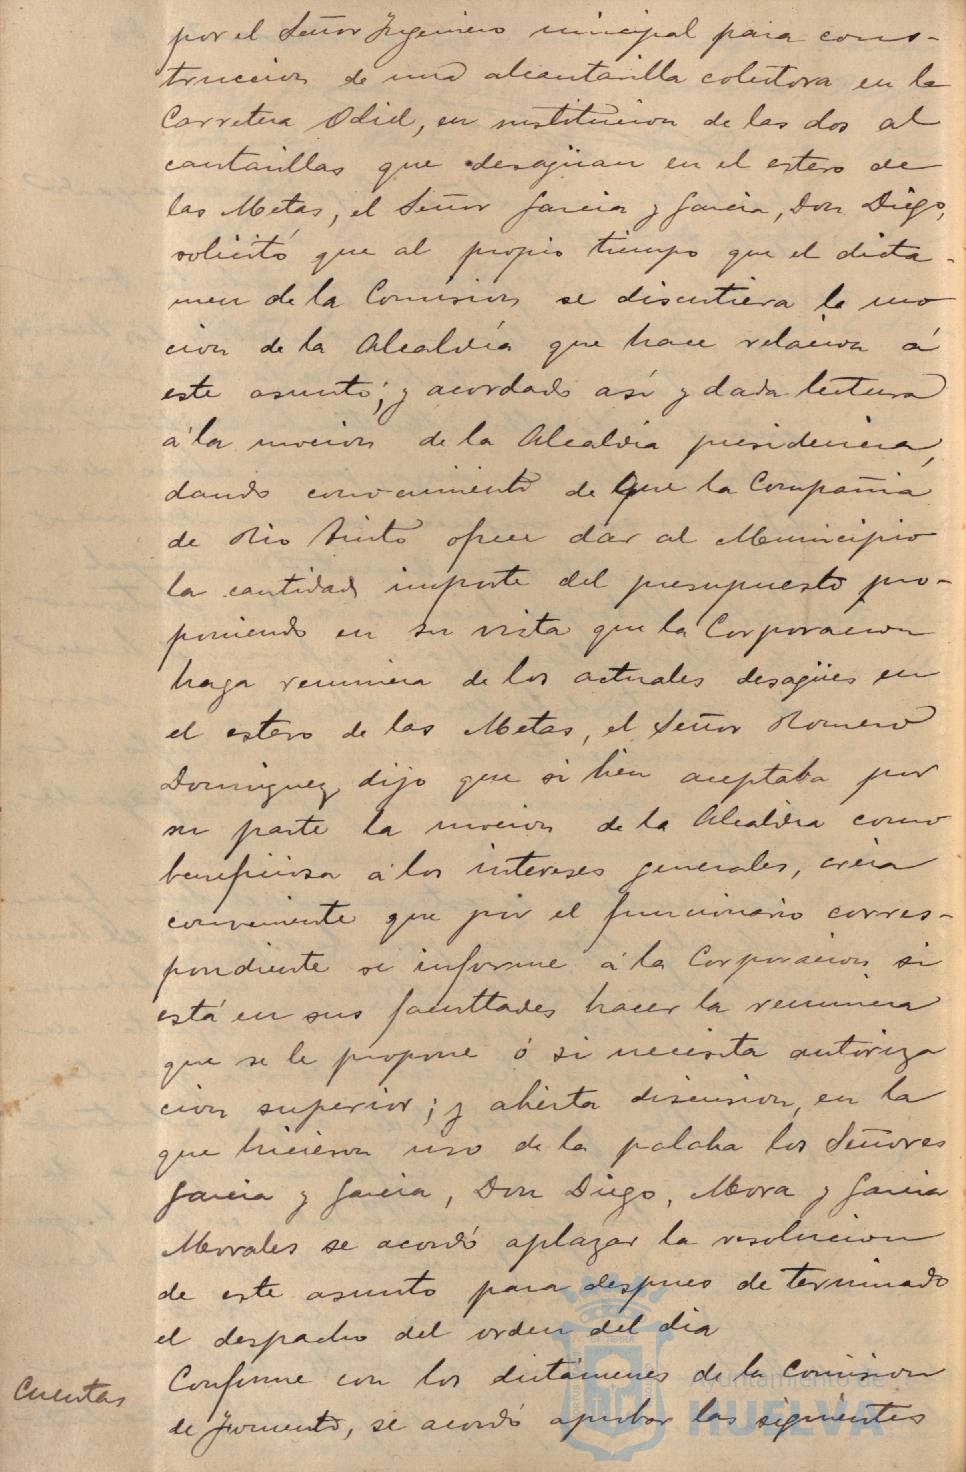 por el Señor Yngeniero municipal para cons-
truccion de una alcantarilla colectora en la
Carretera Odiel, en sustitucion de las dos al
cantarillas que desagüan en el estero de
las Metas, el Señor Garcia y Garcia, Don Diego,
solicitó que al propio tiempo que el dicta-
men de la Comision se discutiera la mo
cion de la Alcaldía que hace relacion á
este asunto; y acordado así y dada lectura
á la mocion de la Alcaldia presidencia,
dando conocimiento de que la Compañia
de Rio Tinto ofrece dar al Municipio
la cantidad importe del presupuesto pro-
poniendo en su vista que la Corporacion
haga renuncia de los actuales desagües en
el estero de las Metas, el Señor Romero
Dominguez dijo que si bien aceptaba por
su parte la mocion de la Alcaldia como
beneficiosa á los intereses generales, creia
conveniente que por el funcionario corres-
pondiente se informe á la Corporacion si
está en sus facultades hacer la renuncia
que se le propone ó si necesita autoriza
cion superior; y abierta discusion, en la
que hicieron uso de la palabra los Señores
Garcia y Garcia, Don Diego, Mora y Garcia
Morales se acordó aplazar la resolucion
de este asunto para despues de terminado
el despacho del orden del dia
Cuentas
Conforme con los dictámenes de la Comision
de Fomento, se acordó aprobar las siguientes
Ayuntamiento de
HUELVA